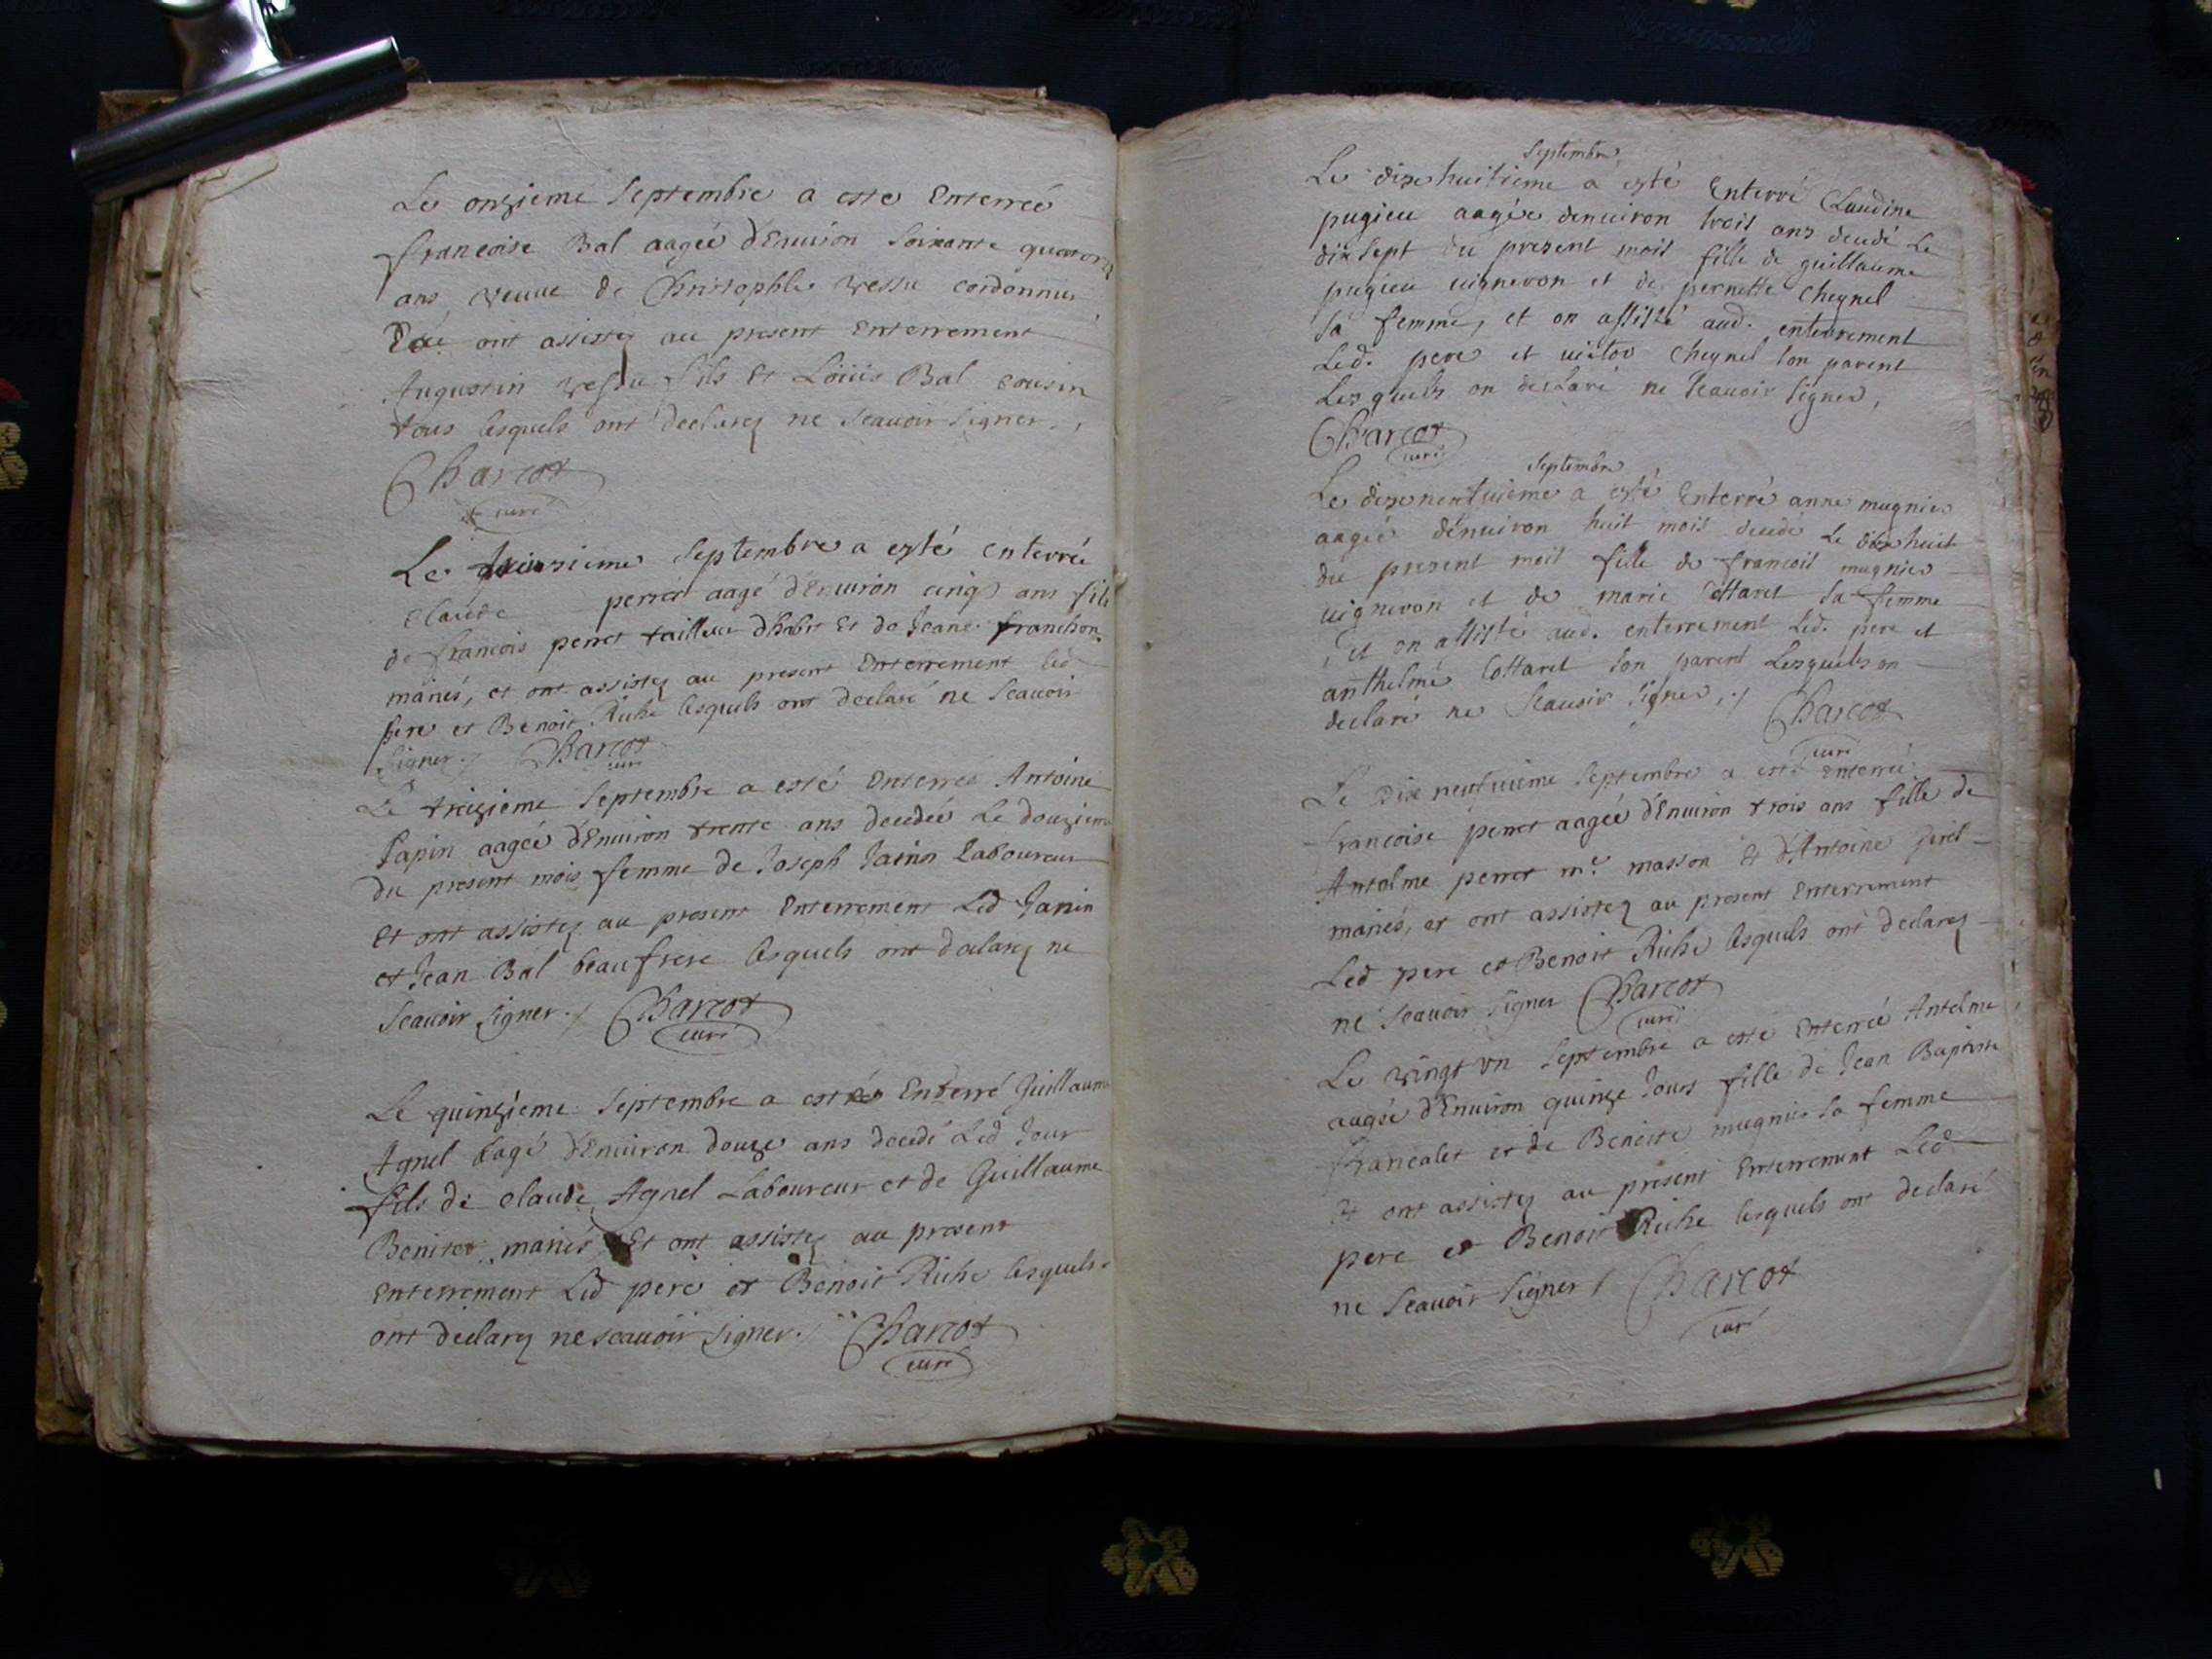 Le onzieme Septembre a este Enterreé
francoise Bal aageé d'Enuiron Soixante quatorze
ans veuue de Christophle vessu cordonnier
ont assistez au present Enterrement
Augustin vessu fils Et Loüis Bal cousin
tous lesquels ont declarez ne Scauoir signer.,
Charcot
curé
Le septembre a esté enterré
Claude perret aagé d'Enuiron cinq ans fils
de francois perret tailleur d'habit Et de Jeane franchon
mariés, et ont assistez au present Enterrement led
pere et Benoit Riche lesquels ont declaré ne Scauoir
signer. Charcot
curé
Le treizieme Septembre a esté Enterreé Antoine
Papin aageé d'Enuiron trente ans decedeé Le douzieme
du present mois femme de Joseph Janin Laboureur
Et ont assistez au present Enterrement Led Janin
et Jean Bal beaufrere lesquels ont declarez ne
Scauoir signer./ Charcot
curé
Le quinzieme Septembre a esté Enterré Guillaume
Agnel aagé d'Enuiron douze ans decedé Led Jour
fils de claude Agnel Laboureur et de Guillaume
Benitet mariés Et ont assistez au present
Enterrement Led pere et Benoit Riche lesquels
ont declarez ne scauoir signer./ Charcot
curé
Septembre
Le dixe huitieme a esté Enterré Claudine
pugieu aagée denuiron trois ans decedé Le
dixsept du present mois fille de guillaume
pugieu uigneron et de pernette cheynel
sa femme, et on assisté aud. enterrement
Led. pere et uictor cheynel son parent
Lesquels on declaré ne scauoir signer,
Charcot
curé
Septembre
Le dixeneufuieme a esté Enterré anne mugnier
aageé dénuiron huit mois decedé Le dixhuit
du present mois fille de francois mugnier
uigneron et de marie Cottaret sa femme
, et on assisté aud. enterrement Led. pere et
anthelme Cottaret son parent Lesquels on
declaré ne Scauoir signer,./ Charcot
curé
Le Dix neufuieme Septembre a esté Enterreé
francoise perret aageé d'Enuiron trois ans fille de
Antelme perret mr. masson Et d'Antoine
mariés, et ont assistez au present Enterrement
Led pere et Benoit Riche lesquels ont declarez
ne Scauoir signer Charcot
curé
Le vingt vn Septembre a esté Enterreé Antelme
aageé d'Enuiron quinze Jours fille de Jean Baptiste
francalet et de Benoite mugnier sa femme
Et ont assistez au present Enterrement Led
pere et Benoit Riche lesquels ont declaré
ne Scauoir signer / Charcot
curé